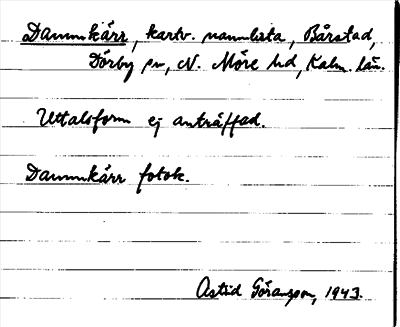 Dammkärr, kartv. namnlista, Bårstad,
Dörby sn, N. Möre hd, Kalm. län.
Uttalsform ej anträffad.
Dammkärr fotok.
Astrid Göransson, 1943.